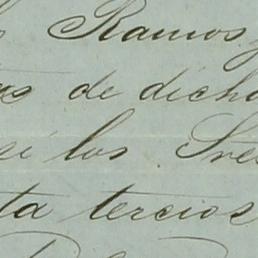 Ramos y
de dicho
si los Sres
ta tercios